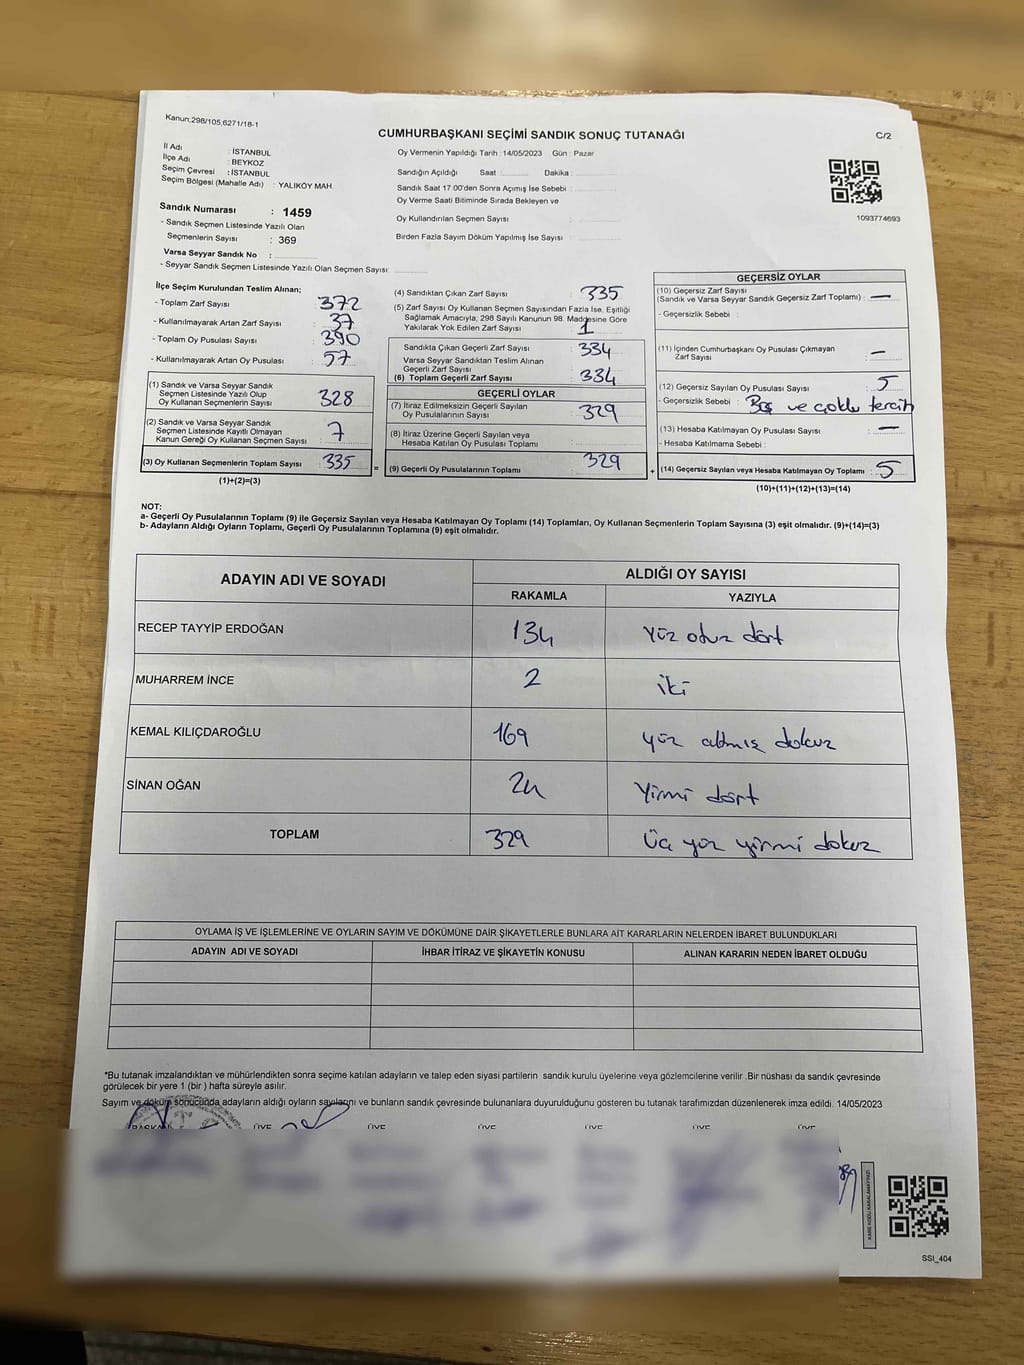 Kanun;298/105,6271/18-1
CUMHURBAŞKANI SEÇİMİ SANDIK SONUÇ TUTANAĞI
C/2
İl Adı : İSTANBUL
İlçe Adı : BEYKOZ
Seçim Çevresi : İSTANBUL
Seçim Bölgesi (Mahalle Adı) : YALIKÖY MAH.
Sandık Numarası : 1459
- Sandık Seçmen Listesinde Yazılı Olan
Seçmenlerin Sayısı : 369
Varsa Seyyar Sandık No :
- Seyyar Sandık Seçmen Listesinde Yazılı Olan Seçmen Sayısı:
Oy Vermenin Yapıldığı Tarih : 14/05/2023 Gün : Pazar
Sandığın Açıldığı Saat : Dakika :
Sandık Saat 17:00'den Sonra Açımış İse Sebebi :
Oy Verme Saati Bitiminde Sırada Bekleyen ve
Oy Kullandırılan Seçmen Sayısı :
Birden Fazla Sayım Döküm Yapılmış İse Sayısı :
1093774693
İlçe Seçim Kurulundan Teslim Alınan;
- Toplam Zarf Sayısı : 372
- Kullanılmayarak Artan Zarf Sayısı : 37
- Toplam Oy Pusulası Sayısı : 390
- Kullanılmayarak Artan Oy Pusulası : 57
(1) Sandık ve Varsa Seyyar Sandık
Seçmen Listesinde Yazılı Olup
Oy Kullanan Seçmenlerin Sayısı : 328
(2) Sandık ve Varsa Seyyar Sandık
Seçmen Listesinde Kayıtlı Olmayan
Kanun Gereği Oy Kullanan Seçmen Sayısı : 7
(3) Oy Kullanan Seçmenlerin Toplam Sayısı : 335
(1)+(2)=(3)
(4) Sandıktan Çıkan Zarf Sayısı : 335
(5) Zarf Sayısı Oy Kullanan Seçmen Sayısından Fazla İse, Eşitliği
Sağlamak Amacıyla; 298 Sayılı Kanunun 98. Maddesine Göre
Yakılarak Yok Edilen Zarf Sayısı : 1
Sandıkta Çıkan Geçerli Zarf Sayısı : 334
Varsa Seyyar Sandıktan Teslim Alınan
Geçerli Zarf Sayısı
(6) Toplam Geçerli Zarf Sayısı : 334
GEÇERLİ OYLAR
(7) İtiraz Edilmeksizin Geçerli Sayılan
Oy Pusulalarının Sayısı : 329
(8) İtiraz Üzerine Geçerli Sayılan veya
Hesaba Katılan Oy Pusulası Toplamı :
= (9) Geçerli Oy Pusulalarının Toplamı : 329 +
GEÇERSİZ OYLAR
(10) Geçersiz Zarf Sayısı
(Sandık ve Varsa Seyyar Sandık Geçersiz Zarf Toplamı) : —
- Geçersizlik Sebebi :
(11) İçinden Cumhurbaşkanı Oy Pusulası Çıkmayan
Zarf Sayısı : —
(12) Geçersiz Sayılan Oy Pusulası Sayısı : 5
- Geçersizlik Sebebi : Boş ve çoklu tercih
(13) Hesaba Katılmayan Oy Pusulası Sayısı : —
- Hesaba Katılmama Sebebi :
(14) Geçersiz Sayılan veya Hesaba Katılmayan Oy Toplamı : 5
(10)+(11)+(12)+(13)=(14)
NOT:
a- Geçerli Oy Pusulalarının Toplamı (9) ile Geçersiz Sayılan veya Hesaba Katılmayan Oy Toplamı (14) Toplamları, Oy Kullanan Seçmenlerin Toplam Sayısına (3) eşit olmalıdır. (9)+(14)=(3)
b- Adayların Aldığı Oyların Toplamı, Geçerli Oy Pusulalarının Toplamına (9) eşit olmalıdır.
ADAYIN ADI VE SOYADI
ALDIĞI OY SAYISI
RAKAMLA YAZIYLA
RECEP TAYYİP ERDOĞAN 134 Yüz otuz dört
MUHARREM İNCE 2 iki
KEMAL KILIÇDAROĞLU 169 yüz altmış dokuz
SİNAN OĞAN 24 Yirmi dört
TOPLAM 329 Üç yüz yirmi dokuz
OYLAMA İŞ VE İŞLEMLERİNE VE OYLARIN SAYIM VE DÖKÜMÜNE DAİR ŞİKAYETLERLE BUNLARA AİT KARARLARIN NELERDEN İBARET BULUNDUKLARI
ADAYIN ADI VE SOYADI İHBAR İTİRAZ VE ŞİKAYETİN KONUSU ALINAN KARARIN NEDEN İBARET OLDUĞU
*Bu tutanak imzalandıktan ve mühürlendikten sonra seçime katılan adayların ve talep eden siyasi partilerin sandık kurulu üyelerine veya gözlemcilerine verilir .Bir nüshası da sandık çevresinde
görülecek bir yere 1 (bir ) hafta süreyle asılır.
Sayım ve döküm sonucunda adayların aldığı oyların sayılarını ve bunların sandık çevresinde bulunanlara duyurulduğunu gösteren bu tutanak tarafımızdan düzenlenerek imza edildi. 14/05/2023
BAŞKAN ÜYE ÜYE ÜYE ÜYE ÜYE ÜYE
KARE KODU KARALAMAYINIZ!
SSI_404